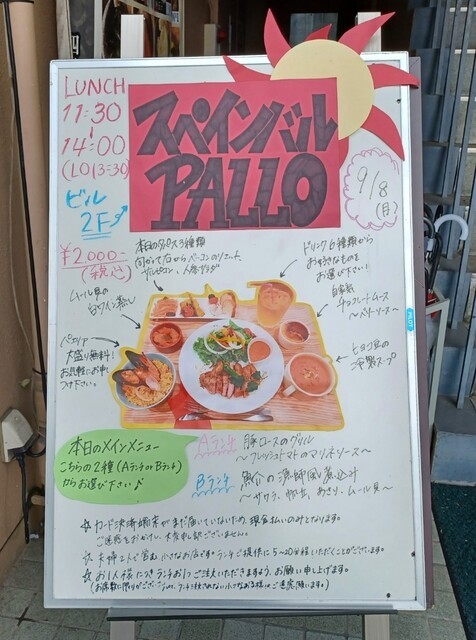 LUNCH
11:30
14:00
(LO13:30)
スペインバル
PALLO
9/8
(月)
ビル
2F
¥2,000-
(税込)
本日のタパス3種類
サルピコン、人参サラダ
ドリンク6種類から
お好きなものを
お選び下さい!
自家製
チョコレートムース
〜ベリーソース〜
ムール貝の
白ワイン蒸し
パエリア
大盛り無料!
お気軽にお申し
つけ下さい。
ヒヨコ豆の
冷製スープ
本日のメインメニュー
こちらの2種(Aランチ or Bランチ)
からお選び下さい♪
Aランチ 豚ロースのグリル
〜フレッシュトマトのマリネソース〜
Bランチ 魚介の漁師風煮込み
〜サワラ、帆立、あさり、ムール貝〜
☆カード決済端末がまだ届いていないため、現金払いのみとなります。
ご迷惑をおかけし、大変申し訳ございません。
☆夫婦2人で営む、小さなお店です。ランチご提供に5〜20分程いただくことがございます。
☆お1人様につきランチお1つご注文いただきますよう、お願い申し上げます。